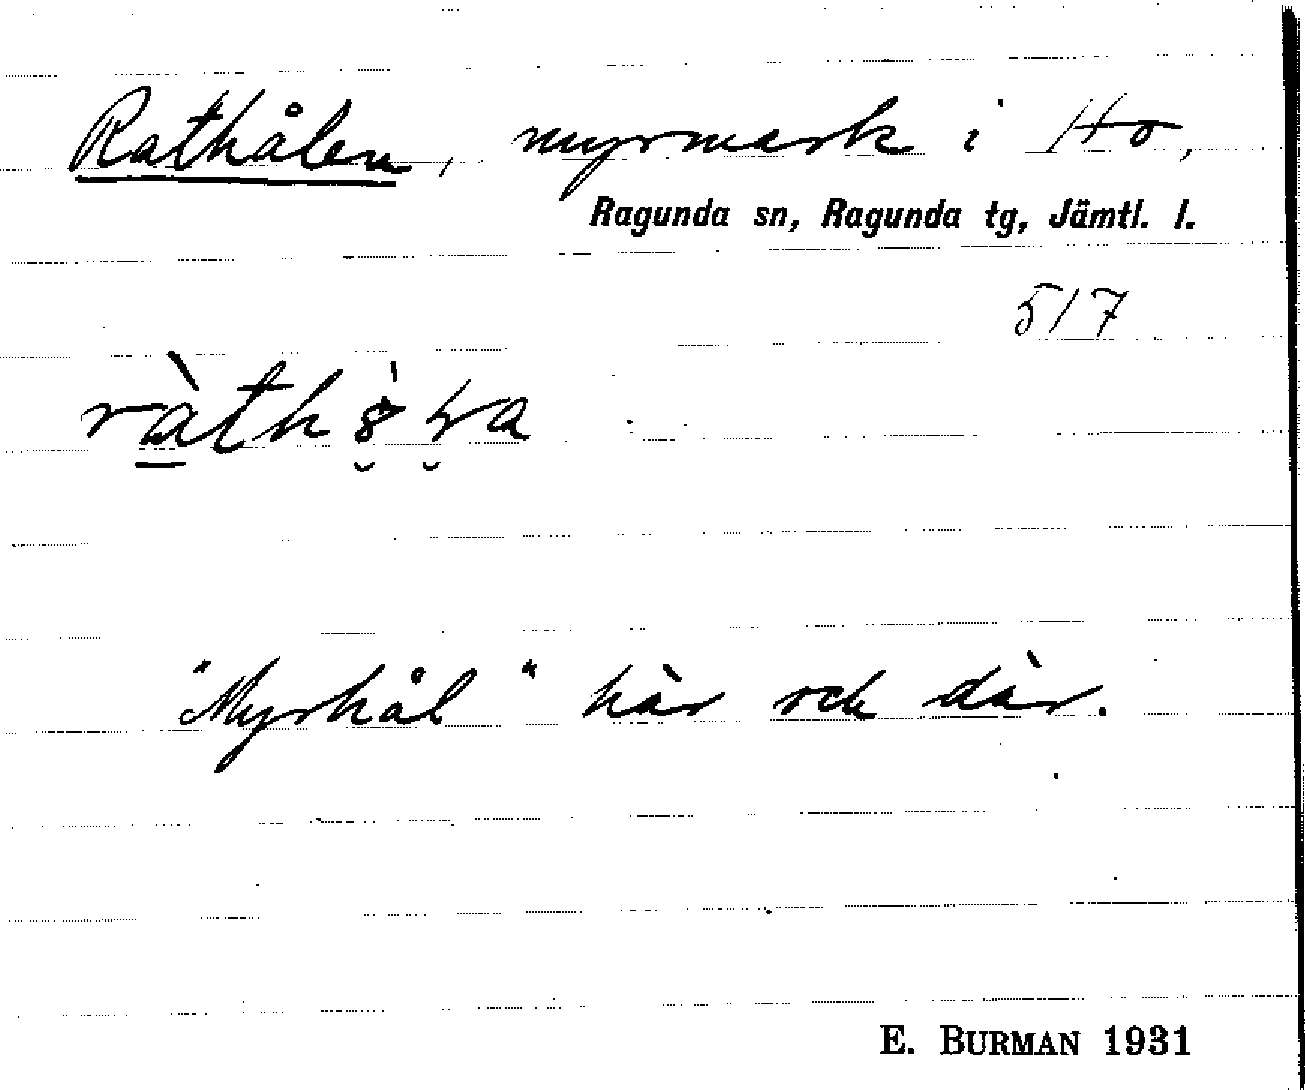 Rathålen, myrmark i Ho,
Ragunda sn, Ragunda tg, Jämtl. l.
517
"Myrhål" här och där.
E. BURMAN 1931